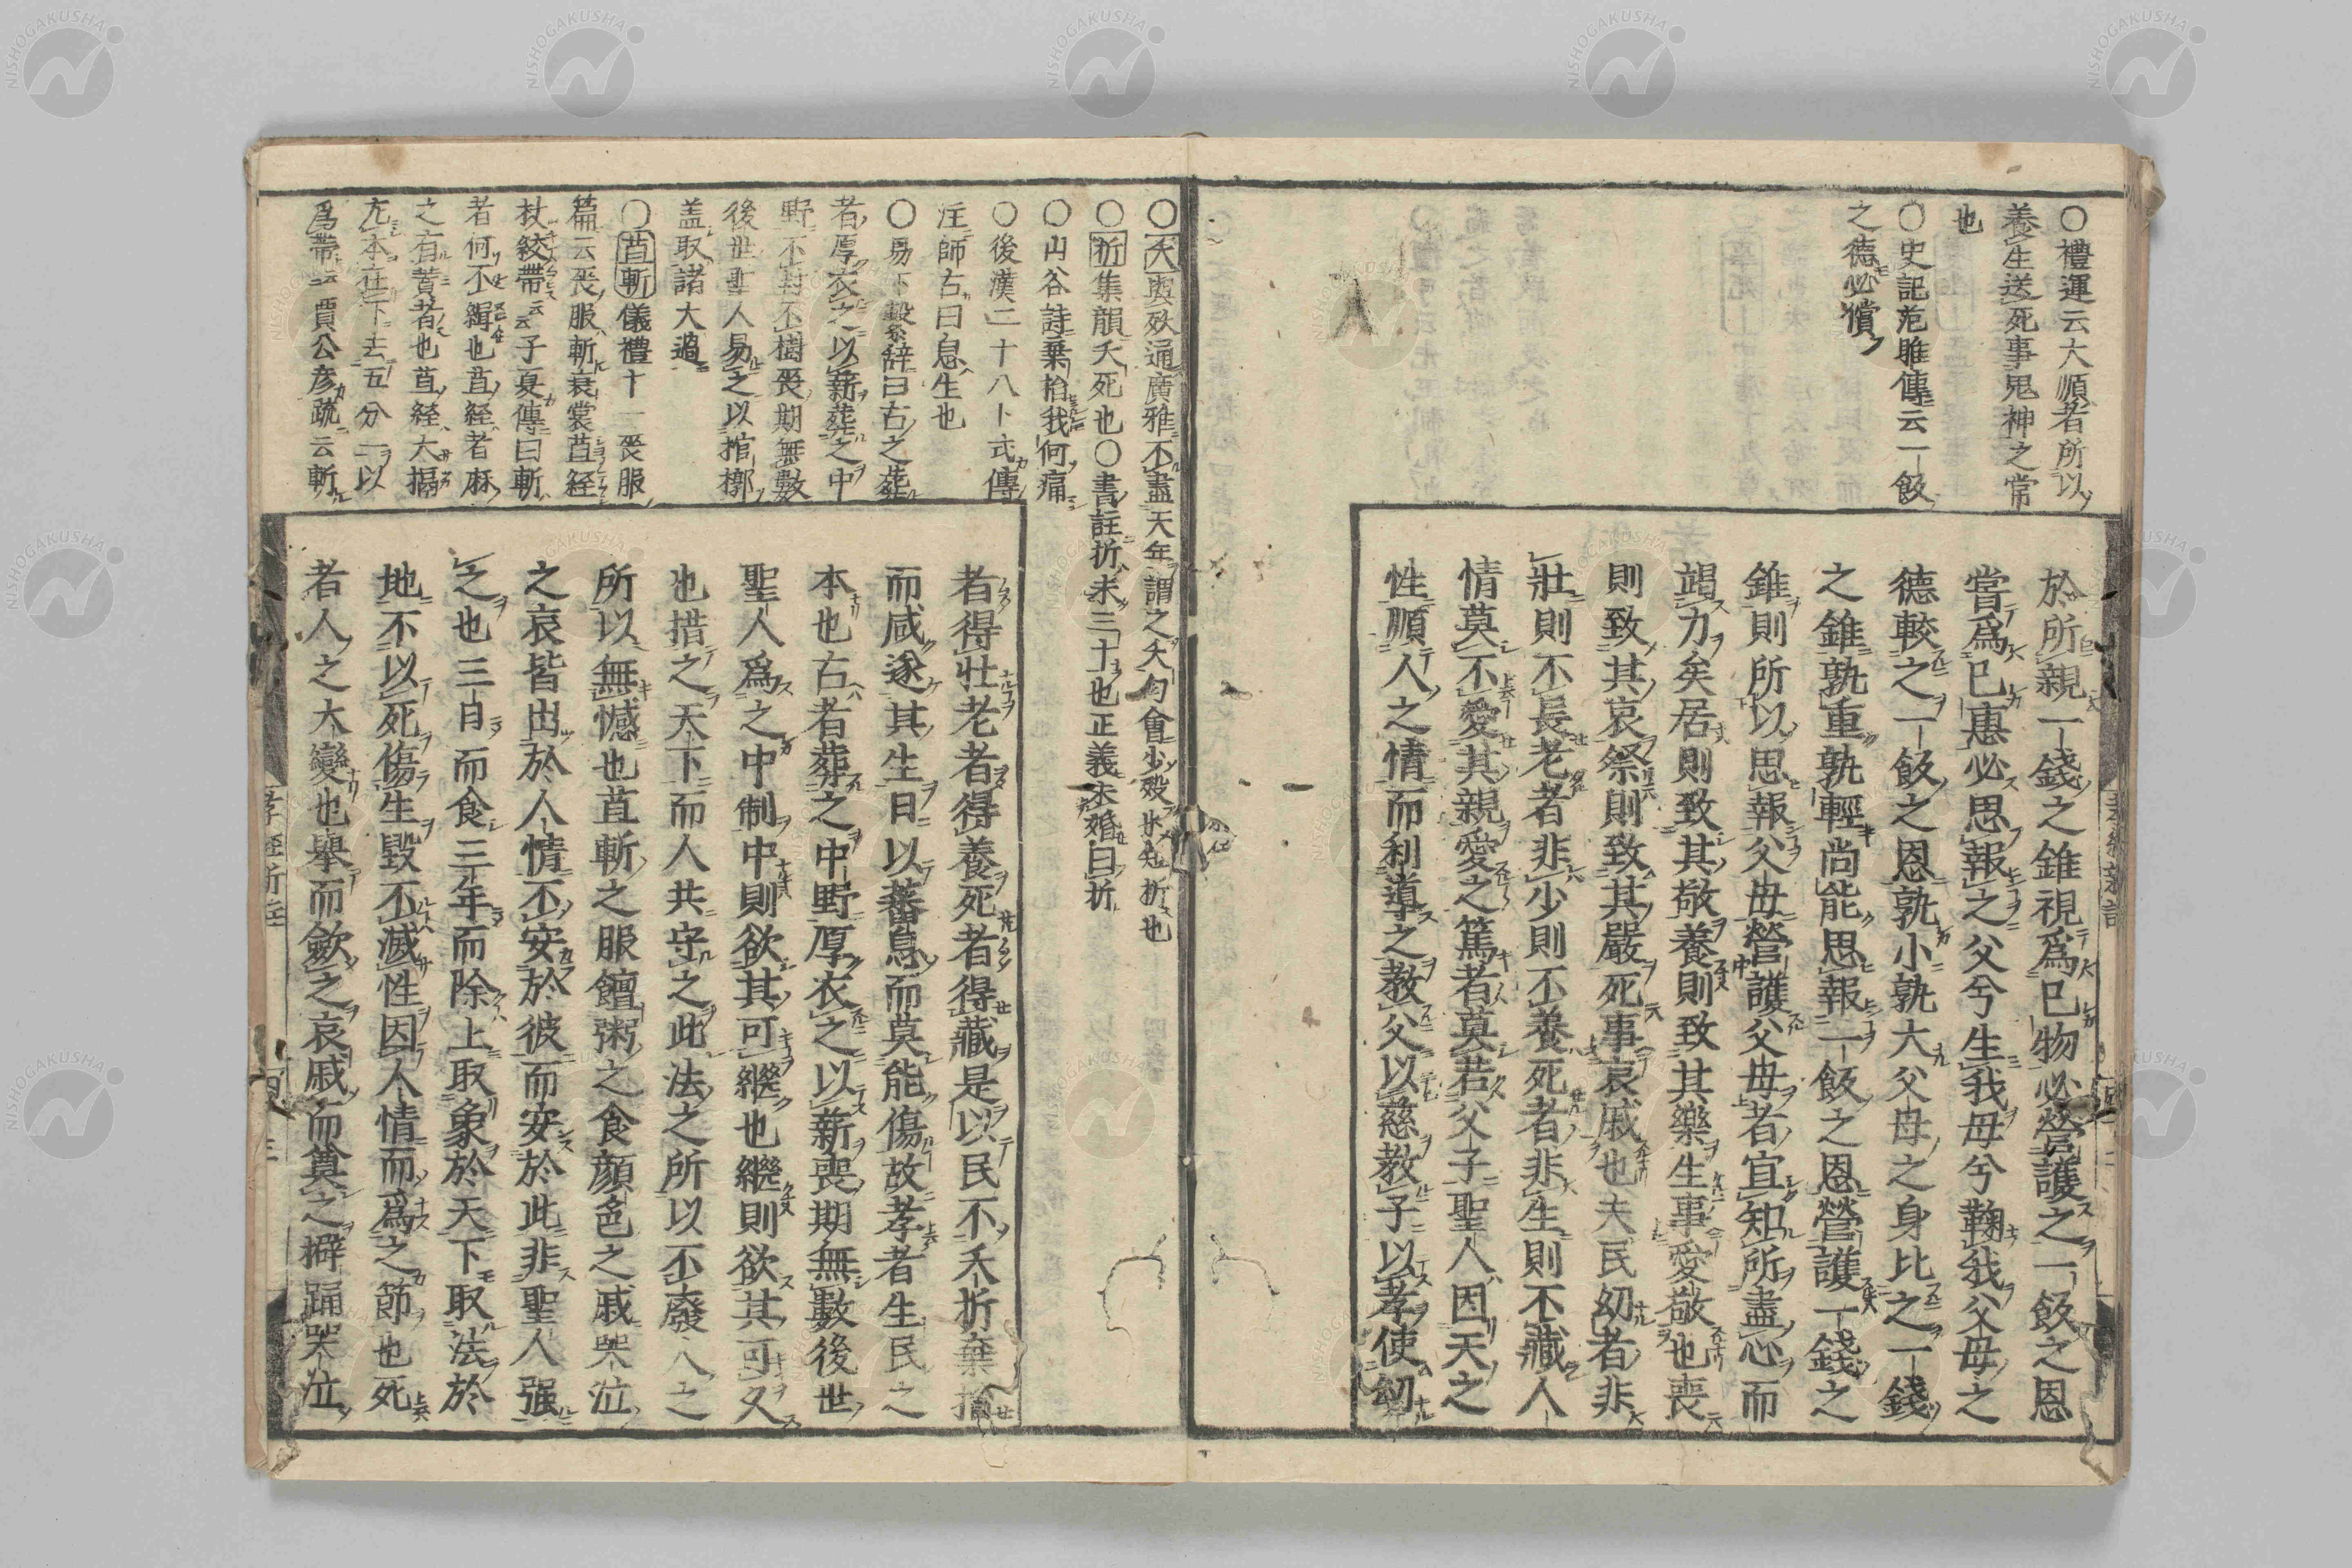 ○禮運云大順者所以
養生送死事鬼神之常
也
○史記范雎傳云一飯
之德必償
於所親一錢之錐視爲己物必營護之一飯之恩
嘗爲己惠必思報之父兮生我母兮鞠我父母之
德較之一飯之恩孰小孰大父母之身比之一錢
之錐孰重孰輕尚能思報一飯之恩營護一錢之
錐則所以思報父母營護父母者宜知所盡心而
竭力矣居則致其敬養則致其樂生事愛敬也喪
則致其哀祭則致其嚴死事哀戚也夫民幼者非
壯則不長老者非少則不養死者非生則不藏人
情莫不愛其親愛之篤者莫若父子聖人因天之
性順人之情而利導之教父以慈教子以孝使幼
○夭與殀通廣雅不盡天年謂之夭勻會少殁也短折也
○折集韻夭死也○書註折未三十也正義未婚曰折
○山谷詩棄捐我何痛
○後漢二十八卜式傳
注師古曰息生也
○易下繫辞曰古之葬
者厚衣之以薪葬之中
野不封不樹喪期無數
後世聖人易之以棺槨
盖取諸大過
○苴斬儀禮十一喪服
篇云喪服斬衰裳苴絰
杖絞帶云云子夏傳曰斬
者何不緝也苴絰者麻
之有蕡者也苴絰大搹
左本在下去五分一以
爲帶云云賈公彦疏云斬
者得壯老者得養死者得藏是以民不夭折棄捐
而咸遂其生日以蕃息而莫能傷故孝者生民之
本也古者葬之中野厚衣之以薪喪期無數後世
聖人爲之中制中則欲其可繼也繼則欲其可久
也措之天下而人共守之此法之所以不廢人之
所以無憾也苴斬之服饘粥之食顔色之戚哭泣
之哀皆出於人情不安於彼而安於此非聖人强
之也三日而食三年而除上取象於天下取法於
地不以死傷生毀不滅性因人情而爲之節也死
者人之大變也舉而歛之哀戚而奠之擗踊哭泣
孝經新註